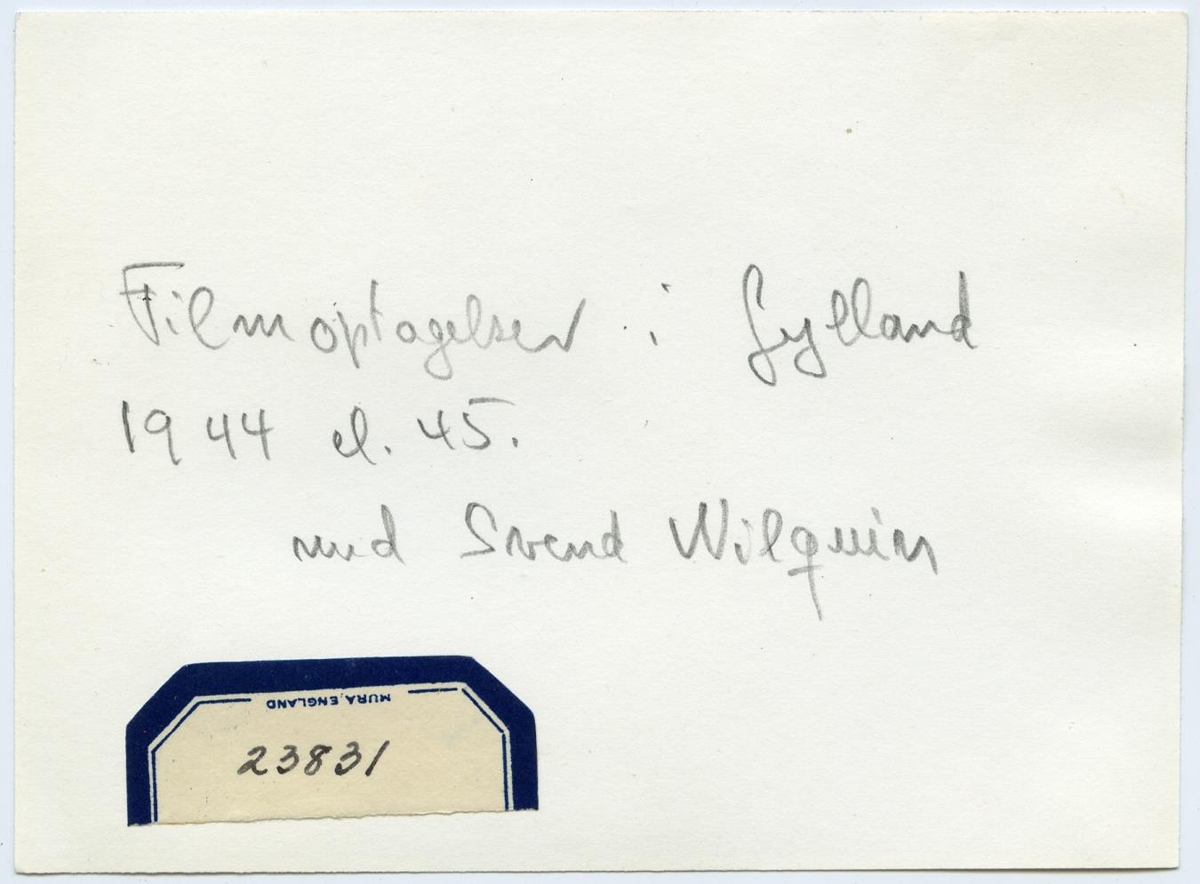 Filmoptagelser i Jylland
1944 el. 45.
med Svend Wilquin
MURA, ENGLAND
23831